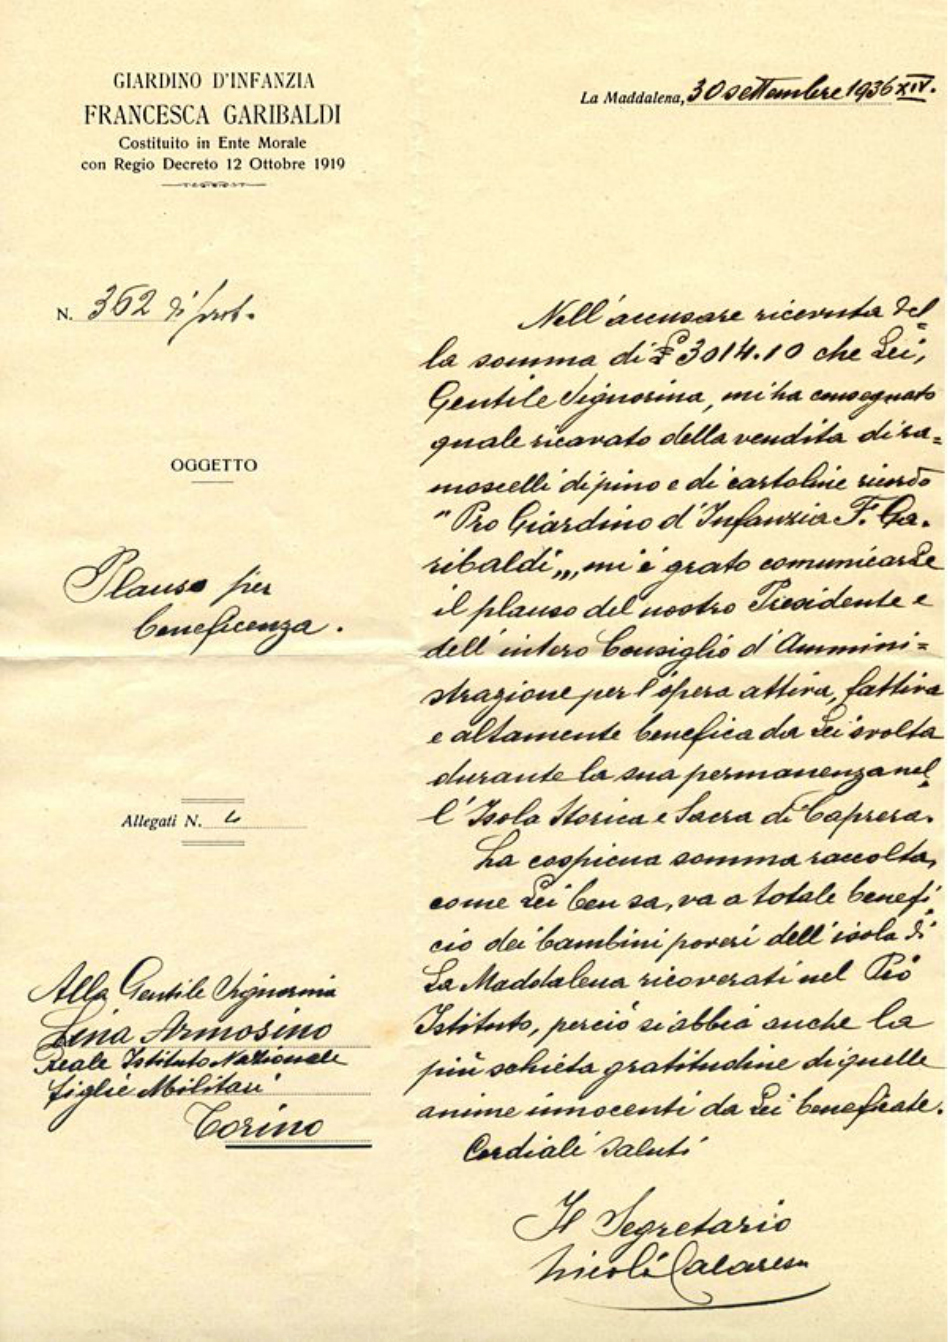 GIARDINO D'INFANZIA
FRANCESCA GARIBALDI
Costituito in Ente Morale
con Regio Decreto 12 Ottobre 1919
La Maddalena, 30 settembre 1936 XIV.
N. 362 di prot.
OGGETTO
Plauso per
beneficenza.
Allegati N.
Alla Gentile Signorina
Lina Armosino
Reale Istituto Nazionale
figlie Militari
Torino
Nell'accusare ricevuta del-
la somma di £ 3014.10 che Lei,
Gentile Signorina, mi ha consegnato
quale ricavato della vendita di ra=
moscelli di pino e di cartoline ricordo
"Pro Giardino d'Infanzia F. Ga-
ribaldi,,, mi è grato comunicarLe
il plauso del nostro Presidente e
dell'intero Consiglio d'Ammini=
strazione per l'opera attiva, fattiva
e altamente benefica da Lei svolta
durante la sua permanenza nel-
l'Isola Storica e Sacra di Caprera.
La cospicua somma raccolta,
come Lei ben sa, va a totale benefi-
cio dei bambini poveri dell'isola di
La Maddalena ricoverati nel Pio
Istituto, perciò si abbia anche la
più schieta gratitudine di quelle
anime innocenti da Lei beneficate.
Cordiali saluti
Il Segretario
Nicolò